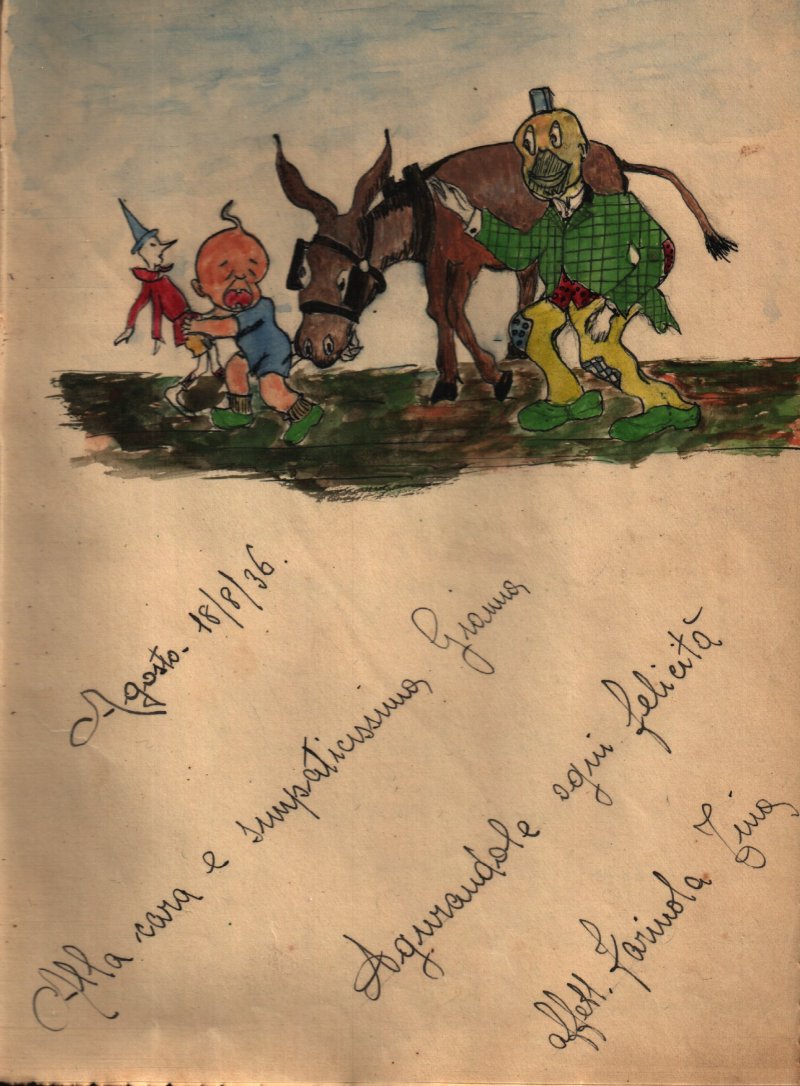 Agosto - 18/8/36.
Alla cara e simpaticissima Gianna
Agurandole ogni felicità
affett. Farinola Tina